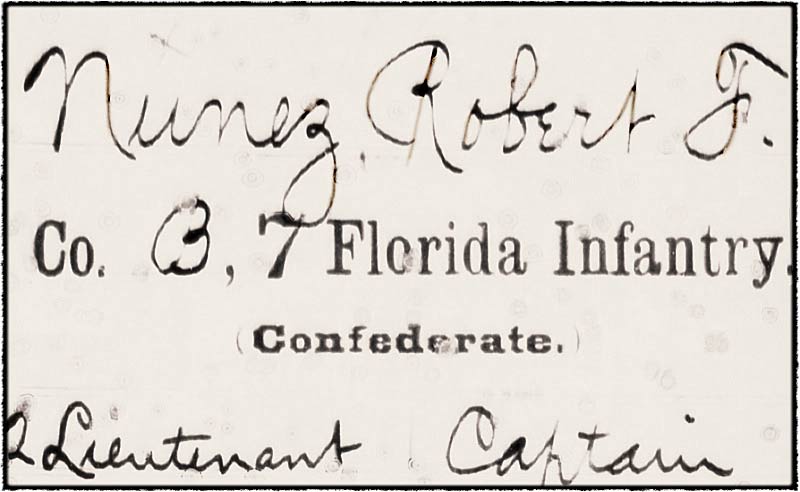 Nunez, Robert F.
Co. B, 7 Florida Infantry.
(Confederate.)
2 Lieutenant Captain